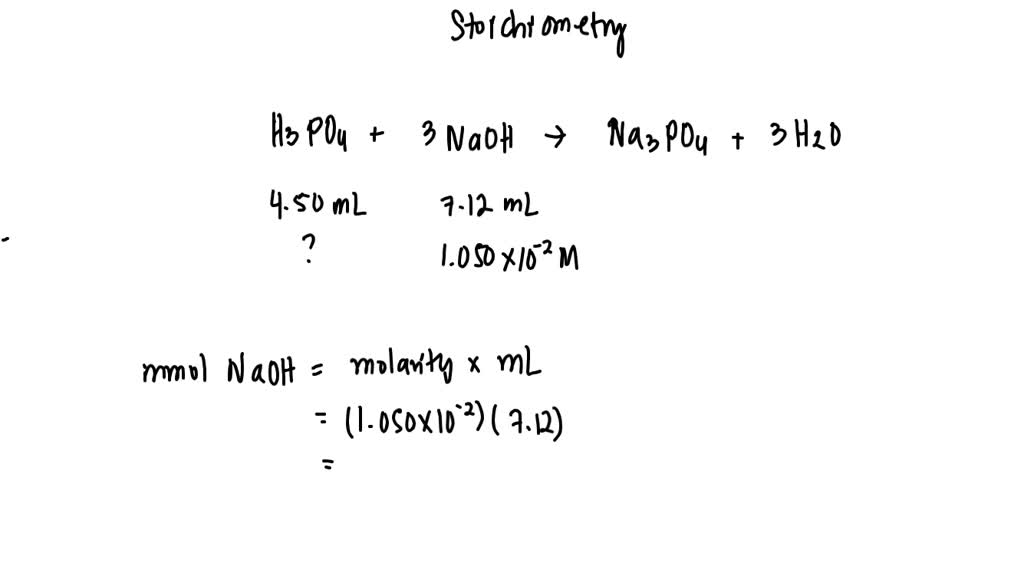 Stoichiometry
H3PO4 + 3 NaOH → Na3PO4 + 3 H2O
4.50 mL 7.12 mL
? 1.050 x 10⁻² M
mmol NaOH = molarity x mL
= (1.050 x 10⁻²) ( 7.12)
=